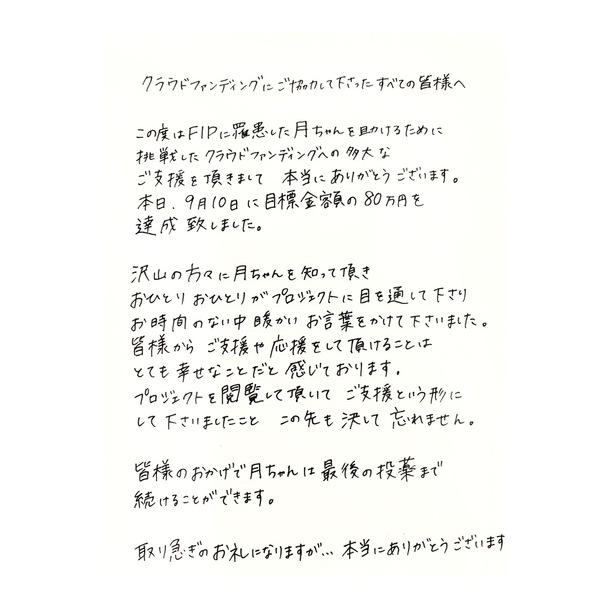 クラウドファンディングにご協力して下さったすべての皆様へ
この度はFIPに罹患した月ちゃんを助けるために
挑戦したクラウドファンディングへの多大な
ご支援を頂きまして 本当にありがとうございます。
本日、9月10日に目標金額の80万円を
達成致しました。
沢山の方々に月ちゃんを知って頂き
おひとりおひとりがプロジェクトに目を通して下さり
お時間のない中暖かいお言葉をかけて下さいました。
皆様からご支援や応援をして頂けることは
とても幸せなことだと感じております。
プロジェクトを閲覧して頂いて ご支援という形に
して下さいましたこと この先も決して忘れません。
皆様のおかげで月ちゃんは最後の投薬まで
続けることができます。
取り急ぎのお礼になりますが… 本当にありがとうございます